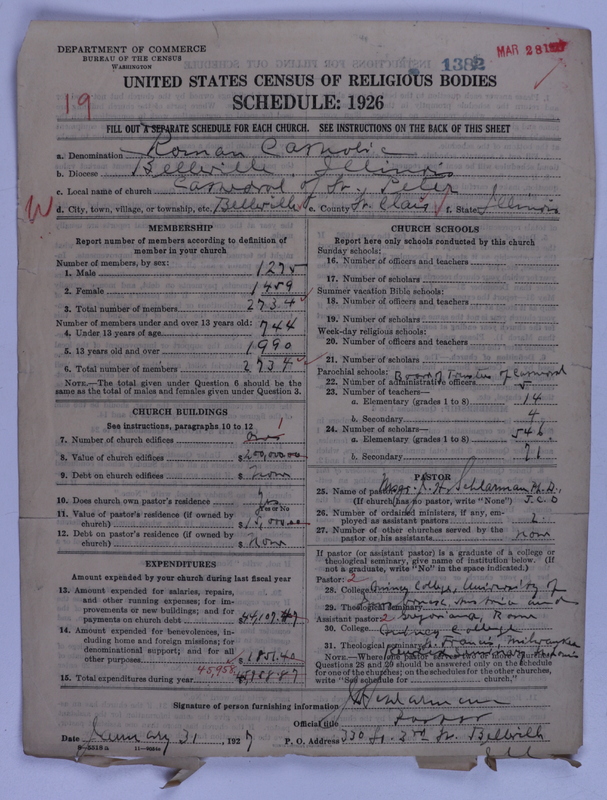 DEPARTMENT OF COMMERCE
BUREAU OF THE CENSUS
WASHINGTON
1382
MAR 28 1927
UNITED STATES CENSUS OF RELIGIOUS BODIES
19
SCHEDULE: 1926
FILL OUT A SEPARATE SCHEDULE FOR EACH CHURCH. SEE INSTRUCTIONS ON THE BACK OF THIS SHEET
a. Denomination Roman Catholic
b. Diocese Bellville, Illinois
c. Local name of church Cathedral of St. Peter
d. City, town, village, or township, etc. Bellville e. County St. Clair f. State Illinois
MEMBERSHIP
Report number of members according to definition of
member in your church
Number of members, by sex:
1. Male 1275
2. Female 1459
3. Total number of members 2734
Number of members under and over 13 years old:
4. Under 13 years of age 744
5. 13 years old and over 1990
6. Total number of members 2734
NOTE.—The total given under Question 6 should be the
same as the total of males and females given under Question 3.
CHURCH BUILDINGS
See instructions, paragraphs 10 to 12
7. Number of church edifices 1
8. Value of church edifices $200,000.00
9. Debt on church edifices $ None
10. Does church own pastor's residence
Yes or No
11. Value of pastor's residence (if owned by
church) $
12. Debt on pastor's residence (if owned by
church) $ None
EXPENDITURES
Amount expended by your church during last fiscal year
13. Amount expended for salaries, repairs,
and other running expenses; for im-
provements or new buildings; and for
payments on church debt $44,107.
14. Amount expended for benevolences, in-
cluding home and foreign missions; for
denominational support; and for all
other purposes $1851.40
45,958
15. Total expenditures during year
CHURCH SCHOOLS
Report here only schools conducted by this church
Sunday schools:
16. Number of officers and teachers
17. Number of scholars
Summer vacation Bible schools:
18. Number of officers and teachers
19. Number of scholars
Week-day religious schools:
20. Number of officers and teachers
21. Number of scholars
Parochial schools: Board of Trustees of Cathedral
22. Number of administrative officers 5
23. Number of teachers—
a. Elementary (grades 1 to 8) 14
b. Secondary 4
24. Number of scholars—
a. Elementary (grades 1 to 8) 546
b. Secondary 71
PASTOR
25. Name of pastor Msgr. J. H. Schlarman Ph.D.,
(If church has no pastor, write "None") J.C.D
26. Number of ordained ministers, if any, em-
ployed as assistant pastors 2
27. Number of other churches served by the
pastor or his assistants None
If pastor (or assistant pastor) is a graduate of a college or
theological seminary, give name of institution below. (If
not a graduate, write "No" in the space indicated.)
Pastor: 2
28. College Quincy College, University of
29. Theological seminary Austria and
Assistant pastor: 2 Gregoriana Rome
30. College Quincy College
31. Theological seminary St. Francis, Milwaukee
Kenrick Seminary
NOTE.—Where the pastor serves two or more churches,
Questions 28 and 29 should be answered only on the schedule
for one of the churches; on the schedules for the other churches,
write "See schedule for church."
Signature of person furnishing information JHSchlarman
Official title Pastor
Date January 31, 1927 P. O. Address 330 So. 3rd St. Bellville
Ill
8-5518a 11-9051a